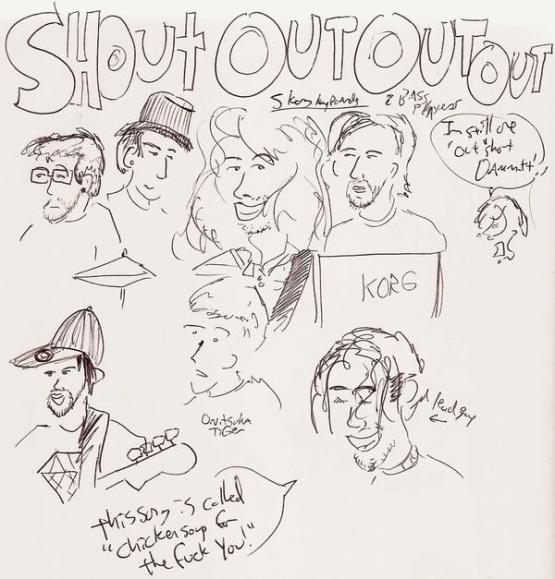 SHOUT OUT OUT OUT
5 Korg keyboards
2 BASS
PLAYERS
I'm still one
"out" short
Dammit!
KORG
ONITSUKA
TIGER
lead guy
this song is called
"chicken soup for
the fuck you!"